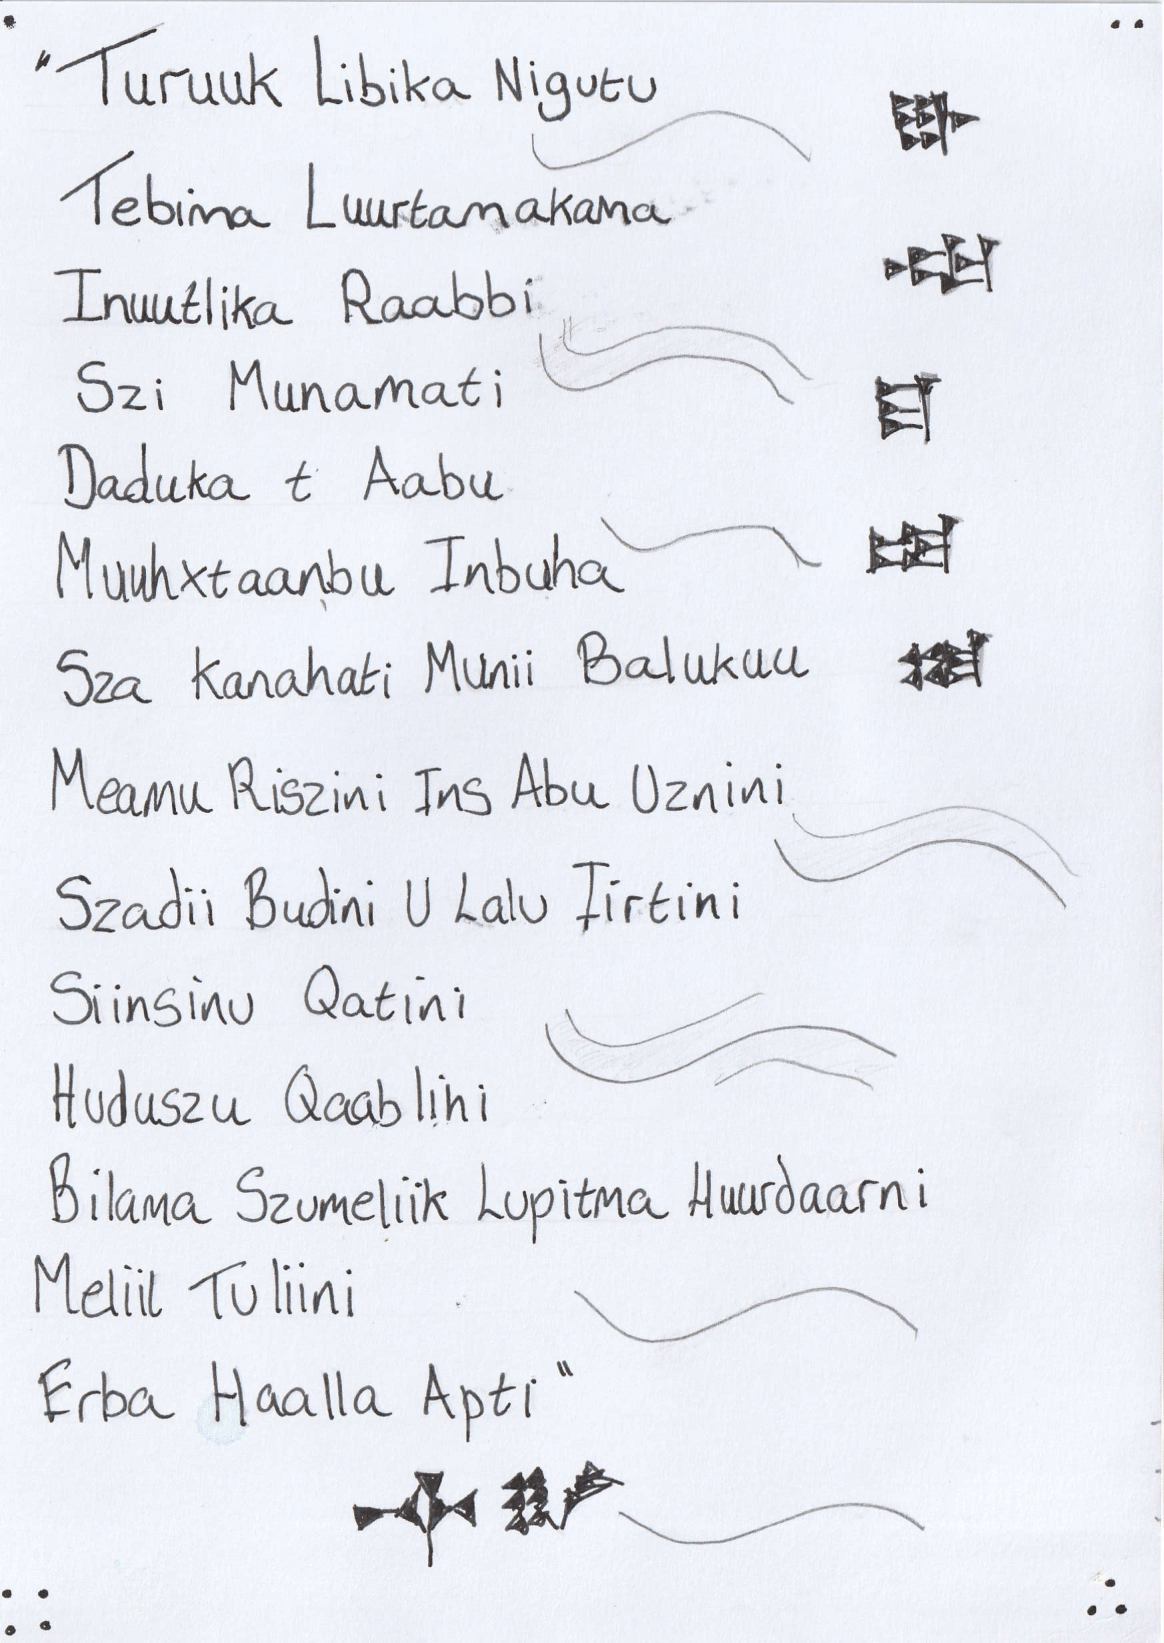 "Turuuk Libika Nigutu
Tebima Luurtamakama
Inuutlika Raabbi
Szi Munamati
Daduka t Aabu
Muuhxtaanbu Inbuha
Sza Kanahati Munii Balukuu
Meamu Riszini Ins Abu Uznini
Szadii Budini U Lalu Iirtini
Siinsinu Qatini
Huduszu Qaablini
Bilama Szumeliik Lupitma Huurdaarni
Meliil Tuliini
Erba Haalla Apti"